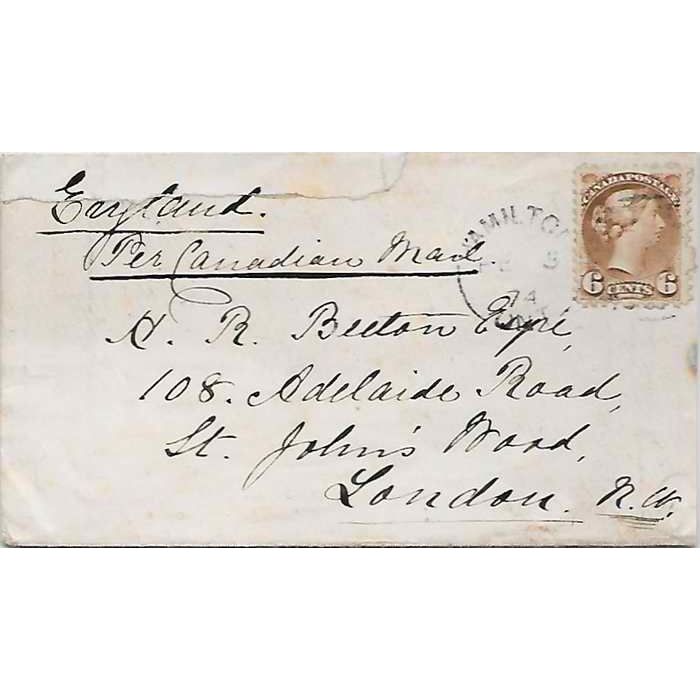 England.
Per Canadian Mail.
HAMILTON
74
ONT
CANADA POSTAGE
6 CENTS 6
H. R. Beeton Esqre,
108. Adelaide Road,
St. John's Wood,
London. N.W.